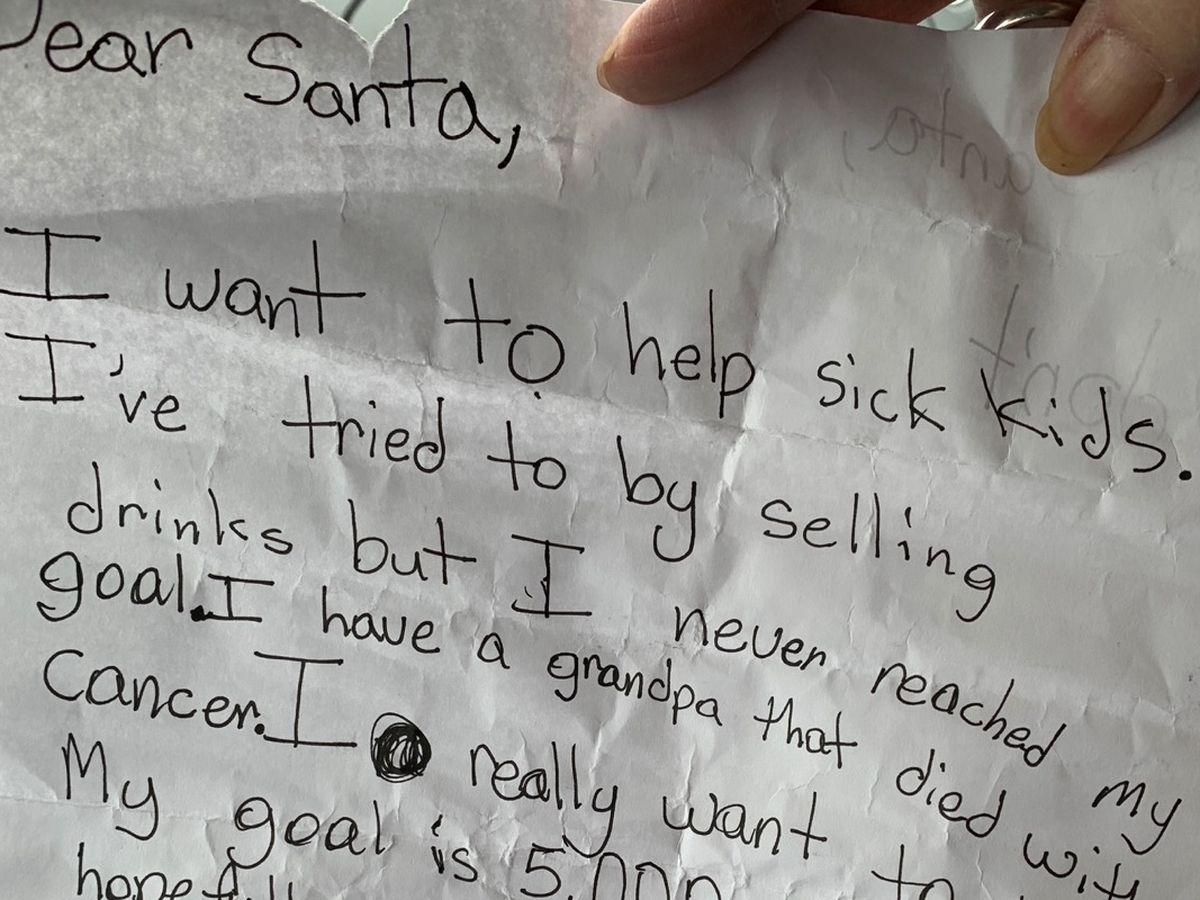 Dear Santa,
I want to help sick kids.
I've tried to by selling
drinks but I never reached my
goal. I have a grandpa that died with
cancer. I really want to
My goal is 5,000